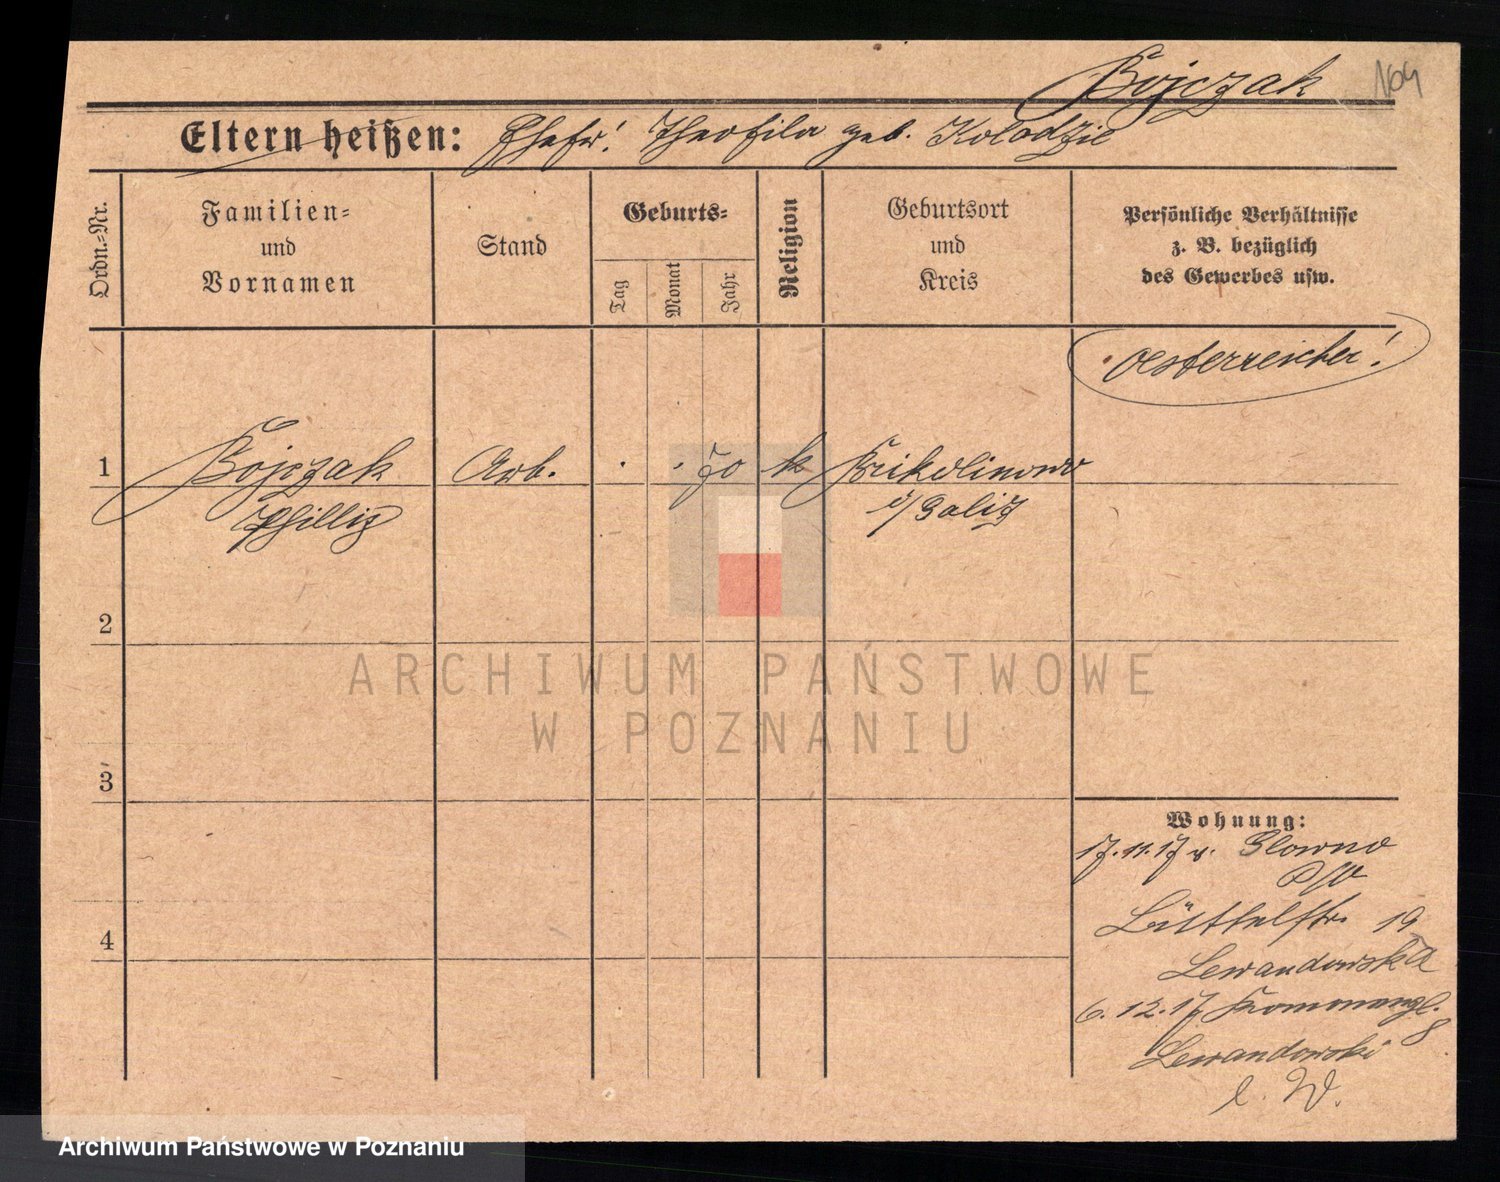 Bojczak 164
Eltern heißen: Ehefr! Theofila geb. Kolodzie
Ordn.-Nr.
Familien-
und
Vornamen
Stand
Geburts-
Tag
Monat
Jahr
Religion
Geburtsort
und
Kreis
Persönliche Verhältnisse
z. B. bezüglich
des Gewerbes usw.
Oesterreicher!
1 Bojczak Arb. . . 70 k
Phillip i/Galiz
2
3
4
Wohnung:
17.11.17 v. Glowno
P/W
19
Lewandowska
6.12.17
8
Lewandowski
l. W.
ARCHIWUM PAŃSTWOWE
W POZNANIU
Archiwum Państwowe w Poznaniu